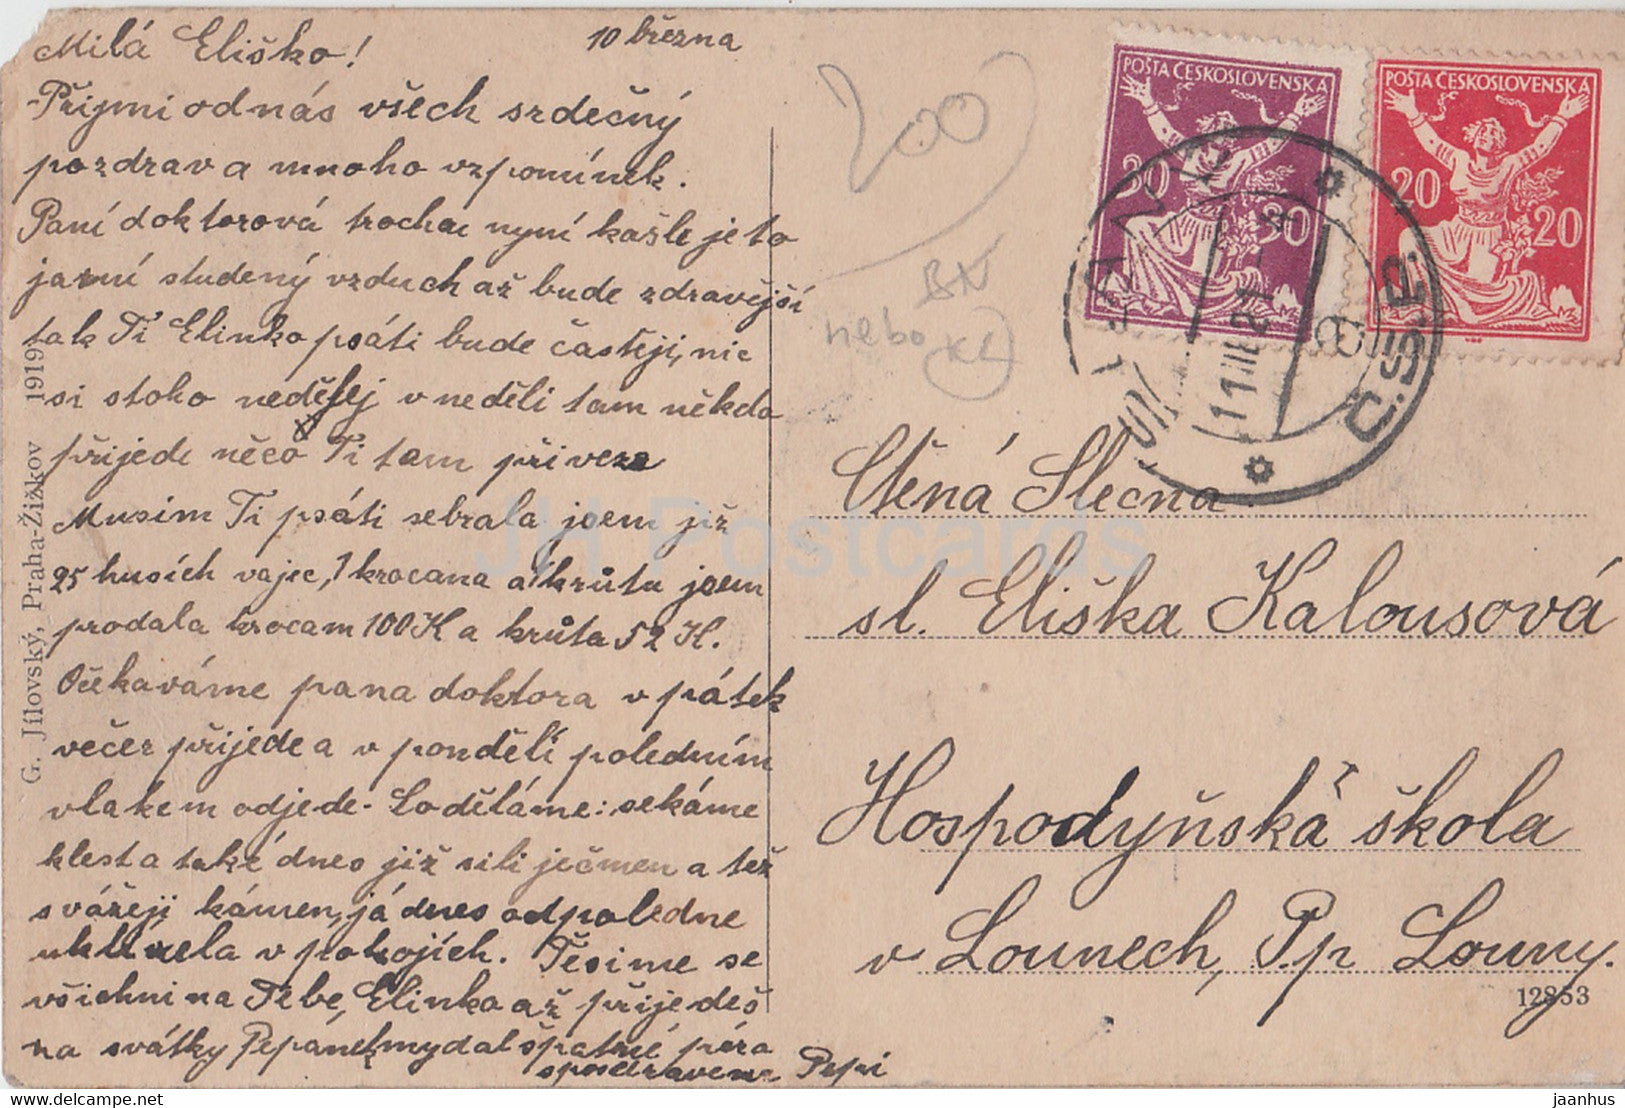 10 března
Milá Eliško!
Přijmi od nás všech srdečný
pozdrav a mnoho vzpomínek.
Paní doktorová trochu nyní kašle je to
jarní studený vzduch až bude zdravější
tak Ti Elinko psáti bude častěji, nic
si stoho nedělej v neděli tam někdo
přijede něco Ti tam přiveze
Musim Ti psáti sebrala jsem již
25 husích vajec, 1 krocana a 1 krůtu jsem
prodala krocam 100 K a krůta 52 K.
Očekaváme pana doktora v pátek
večer přijede a v pondělí poledním
vlakem odjede. Co děláme: sekáme
klest a také dnes již sili ječmen a též
svážeji kámen, já dnes odpoledne
uklízela v pokojích. Těsime se
všichni na Tebe, Elinko až přijedeš
na svátky Pepánek my dal špatné péra
s pozdravem Pepi
G. Jílovský, Praha-Žižkov 1919
200
BX
nebo
KL
POŠTA ČESKOSLOVENSKÁ
30 30
POŠTA ČESKOSLOVENSKÁ
20 20
11.III.21
Č.S.P.
Ctěná Slečna
sl. Eliška Kalousová
Hospodyňská škola
v Lounech, Pp Louny.
12853
JH Postcards
jaanhus @ delcampe.net